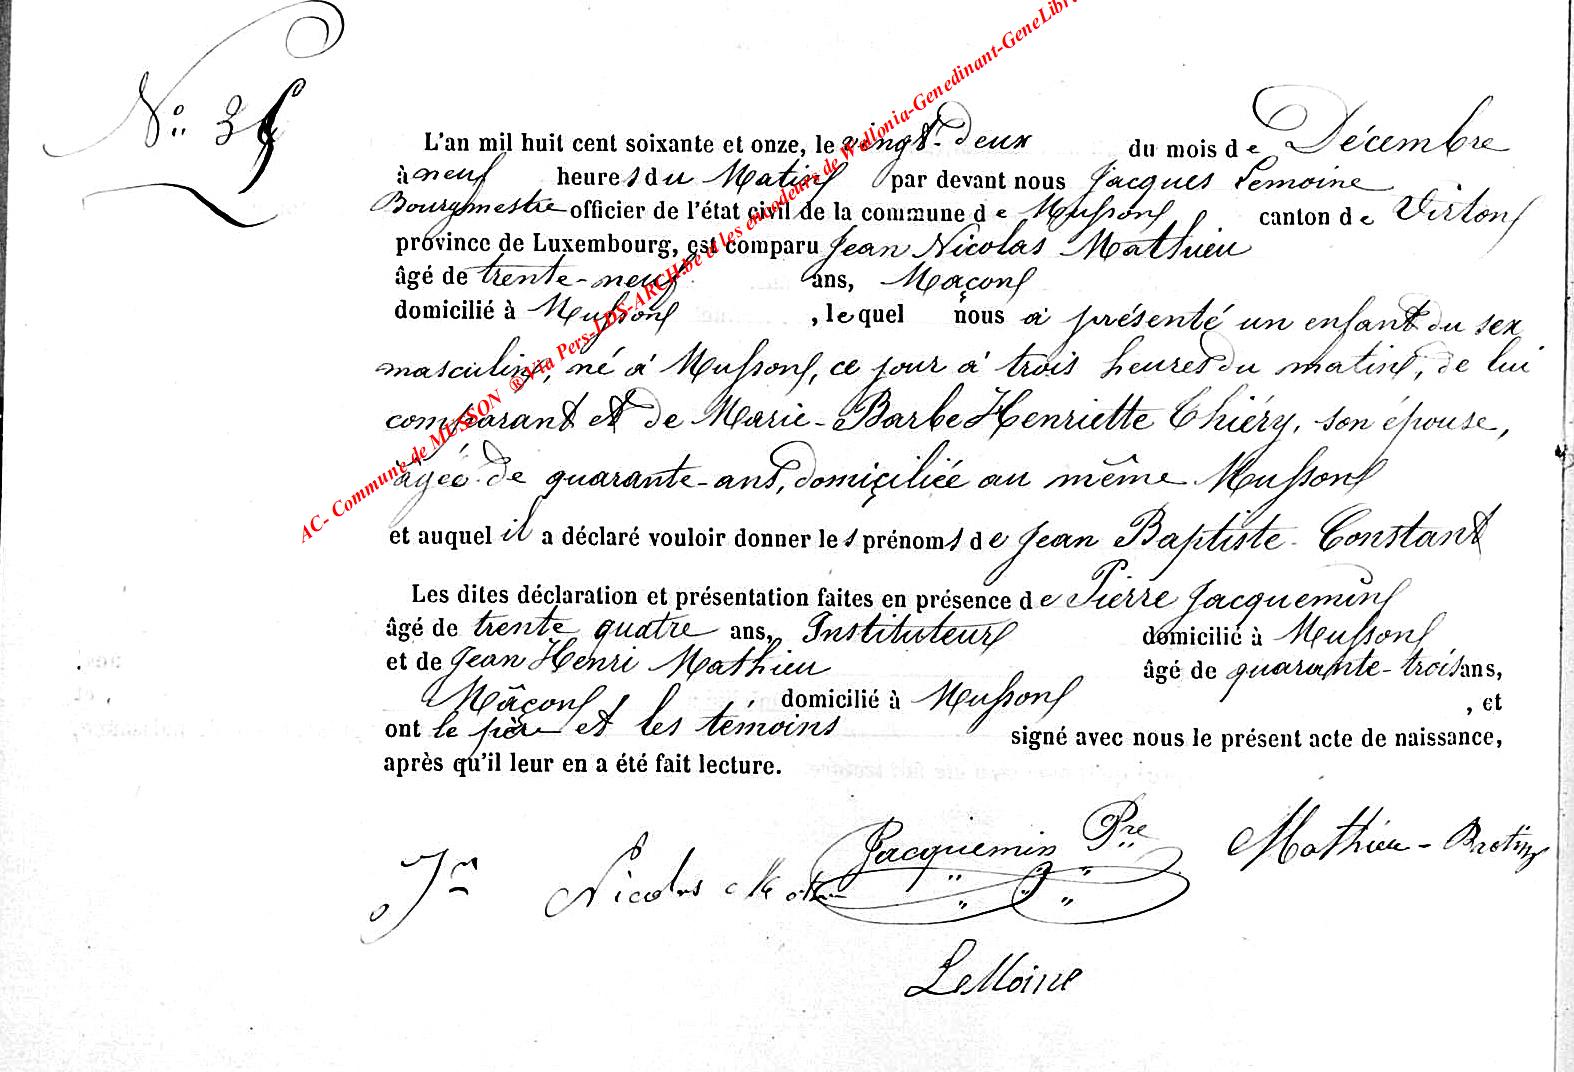 N° 35
L'an mil huit cent soixante et onze, le vingt-deux du mois de Décembre
à neuf heures du Matin par devant nous Jacques Lemoine
Bourgmestre officier de l'état civil de la commune de Musson canton de Virton
province de Luxembourg, est comparu Jean Nicolas Mathieu
âgé de trente-neuf ans, Maçon
domicilié à Musson, lequel nous a présenté un enfant du sex
masculin, né à Musson, ce jour à trois heures du matin, de lui
comparant et de Marie-Barbe Henriette Thiéry, son épouse,
âgée de quarante-ans, domiciliée au même Musson
et auquel il a déclaré vouloir donner les prénoms de Jean Baptiste Constant
Les dites déclaration et présentation faites en présence de Pierre Jacquemin
âgé de trente quatre ans, Instituteur domicilié à Musson
et de Jean Henri Mathieu âgé de quarante-trois ans,
Mâçon domicilié à Musson, et
ont le père et les témoins signé avec nous le présent acte de naissance,
après qu'il leur en a été fait lecture.
Jn Nicolas Mathieu Jacquemin Pre Mathieu-
LeMoine
AC- Commune de MUSSON ® Via Pers-LDS-ARCH.be et les encodeurs de Wallonia-Genedinant-GeneLibr